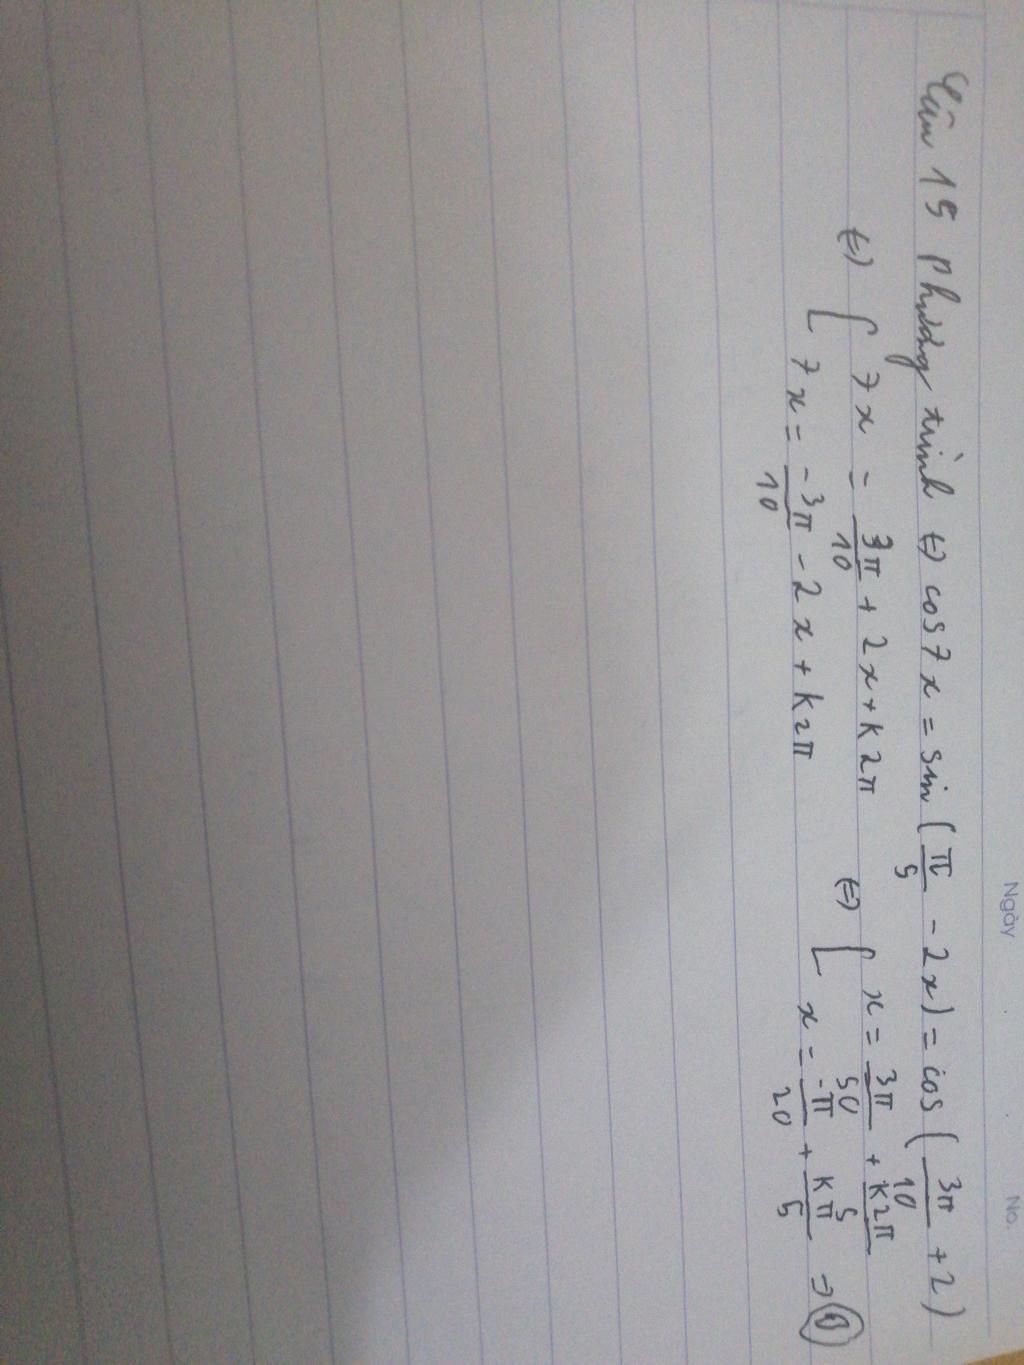 Ngày No.
Câu 15 Phương trình ⇔ cos 7x = sin (π/5 - 2x) = cos (3π/10 + 2)
⇔ [ 7x = 3π/10 + 2x + k2π ⇔ [ x = 3π/50 + k2π/5
7x = -3π/10 - 2x + k2π x = -π/20 + kπ/5 ⇒